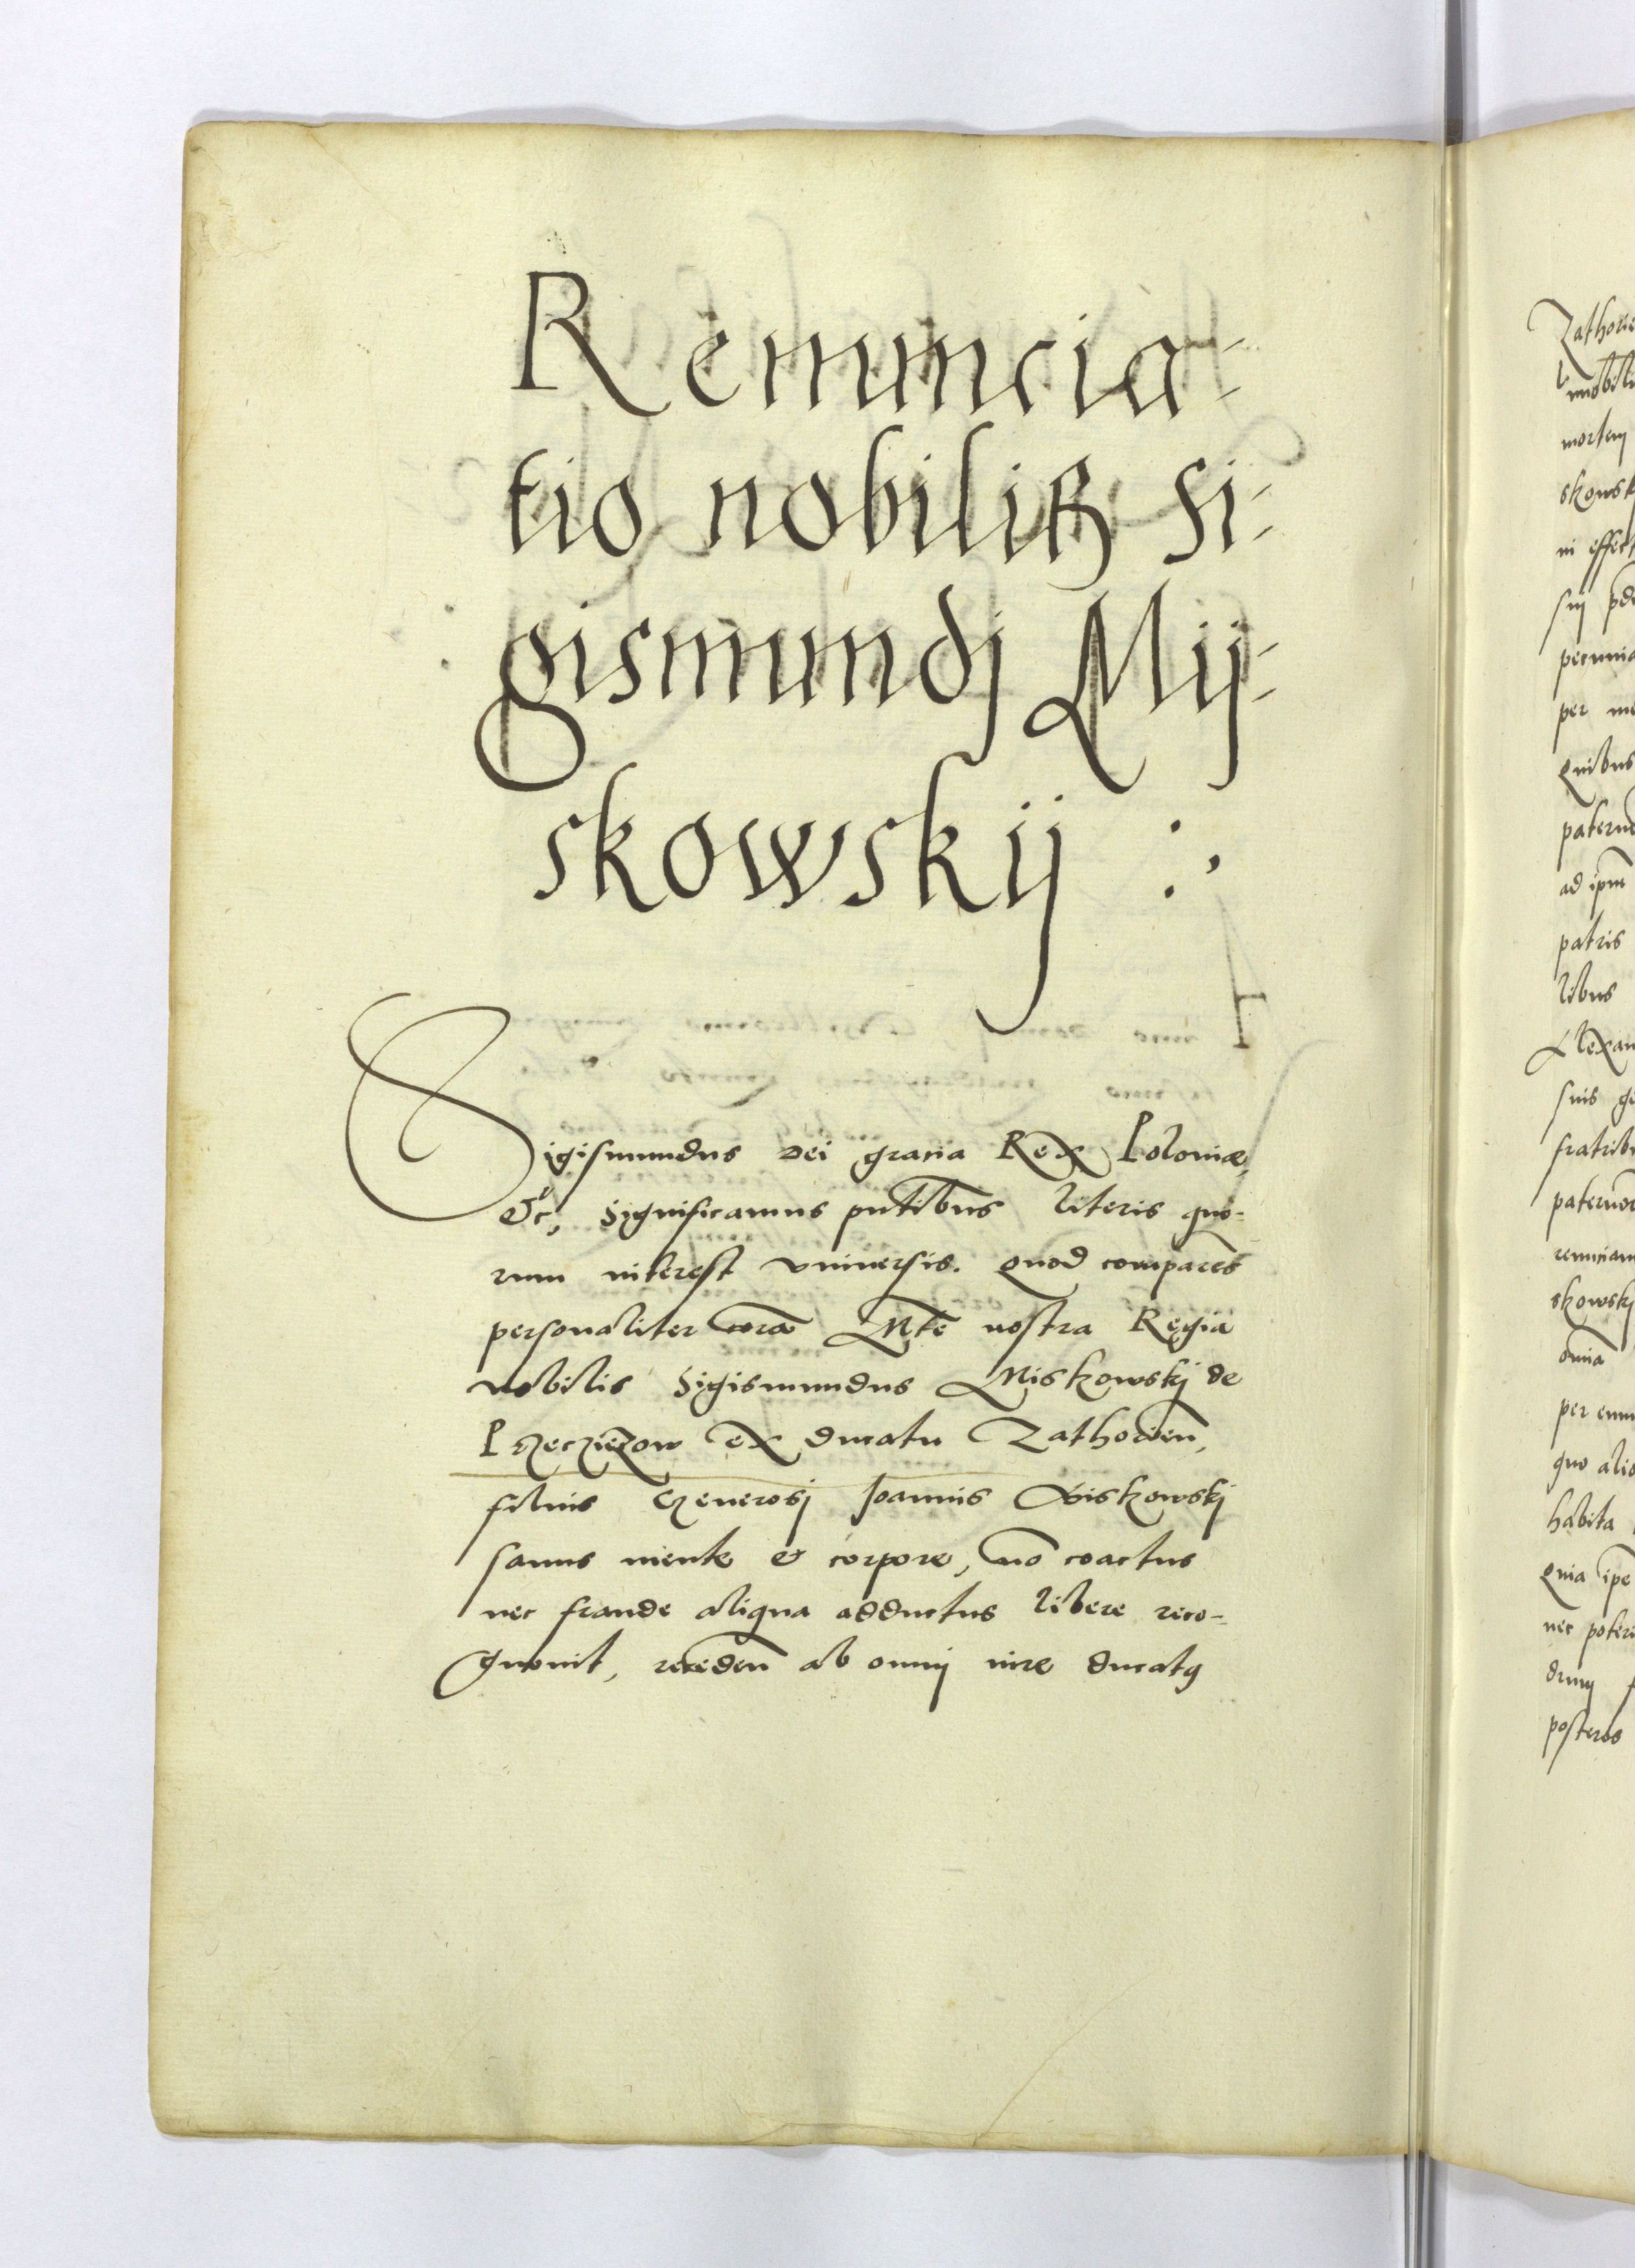 Renuncia-
tio nobiliß Si-
gismundj Mij-
skowskij
Sigismundus Dei gracia Rex Poloniæ,
&c, Significamus pntibus literis quo-
rum interest vniuersis. Quod comparēs
personaliter corā Mte nostra Regia
nobilis Sigismundus Miskowskj de
Przecziezow ex ducatu Zathorien,
filius Generosj Joannis Miskowskj
sanus mente & corpore, nō coactus
nec fraude aliqua adductus libere reco-
gnouit, receden ab omnj iure ducatq
Zathorien
mortem
in effect
per
Quibus
ad ipm
patris
libus
suis
fratribus
skowskj
omnia
per eum
quo alio
habita
Quia ipe
nec
posteros